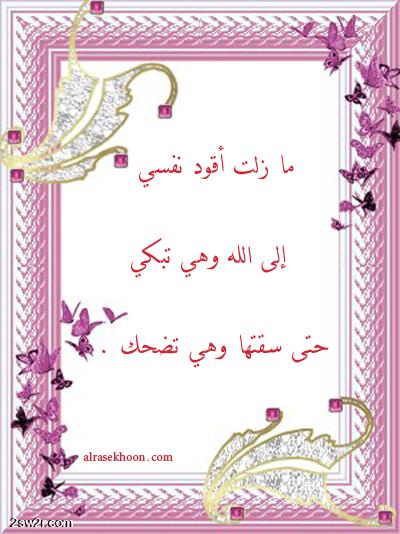 ما زلت أقود نفسي
إلى الله وهي تبكي
حتى سقتها وهي تضحك .
alrasekhoon.com
2sw2r.com